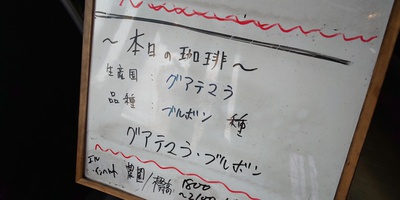 ～本日の珈琲～
生産国：グアテマラ
品種：ブルボン 種
グアテマラ・ブルボン
農園/標高 1800